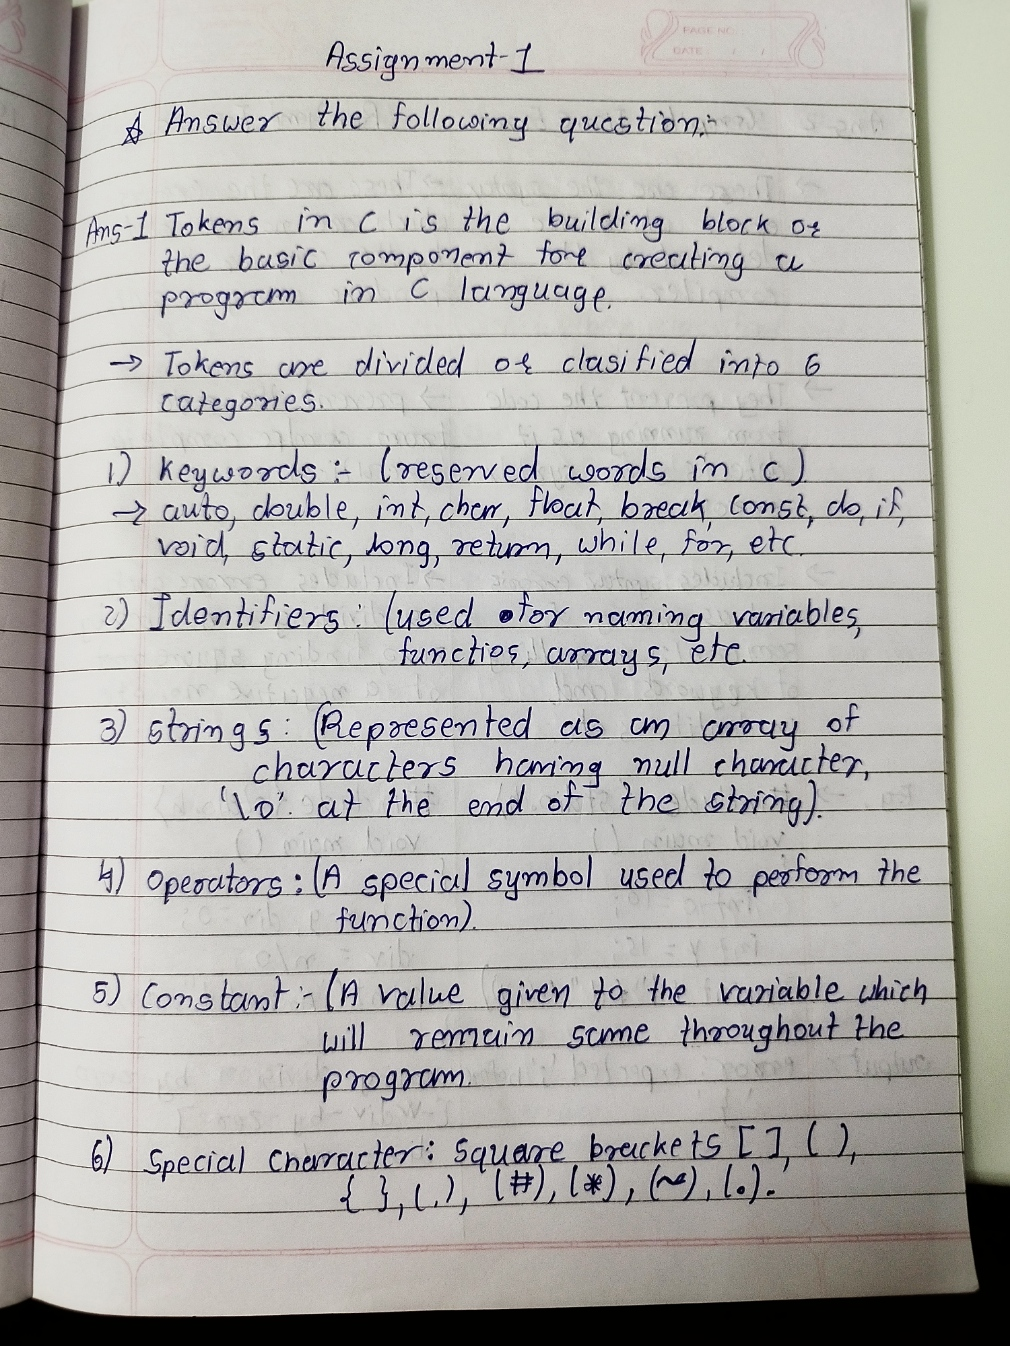 PAGE NO:
DATE: / /
Assignment-1
☆ Answer the following question:-
Ans-1 Tokens in C is the building block or
the basic component fore creating a
program in C language.
→ Tokens are divided or clasified into 6
categories.
1) Keywords :- (reserved words in c)
→ auto, double, int, char, float, break, const, do, if,
void, static, long, return, while, for, etc.
2) Identifiers : (used for naming variables,
functios, arrays, etc.
3) Strings : (Represented as an array of
characters having null character,
'\0'. at the end of the string).
4) Operators : (A special symbol used to perform the
function).
5) Constant :- (A value given to the variable which
will remain same throughout the
program.
6) Special Character : Square brackets [ ], ( ),
{ }, (,), (#), (*), (~), (.).